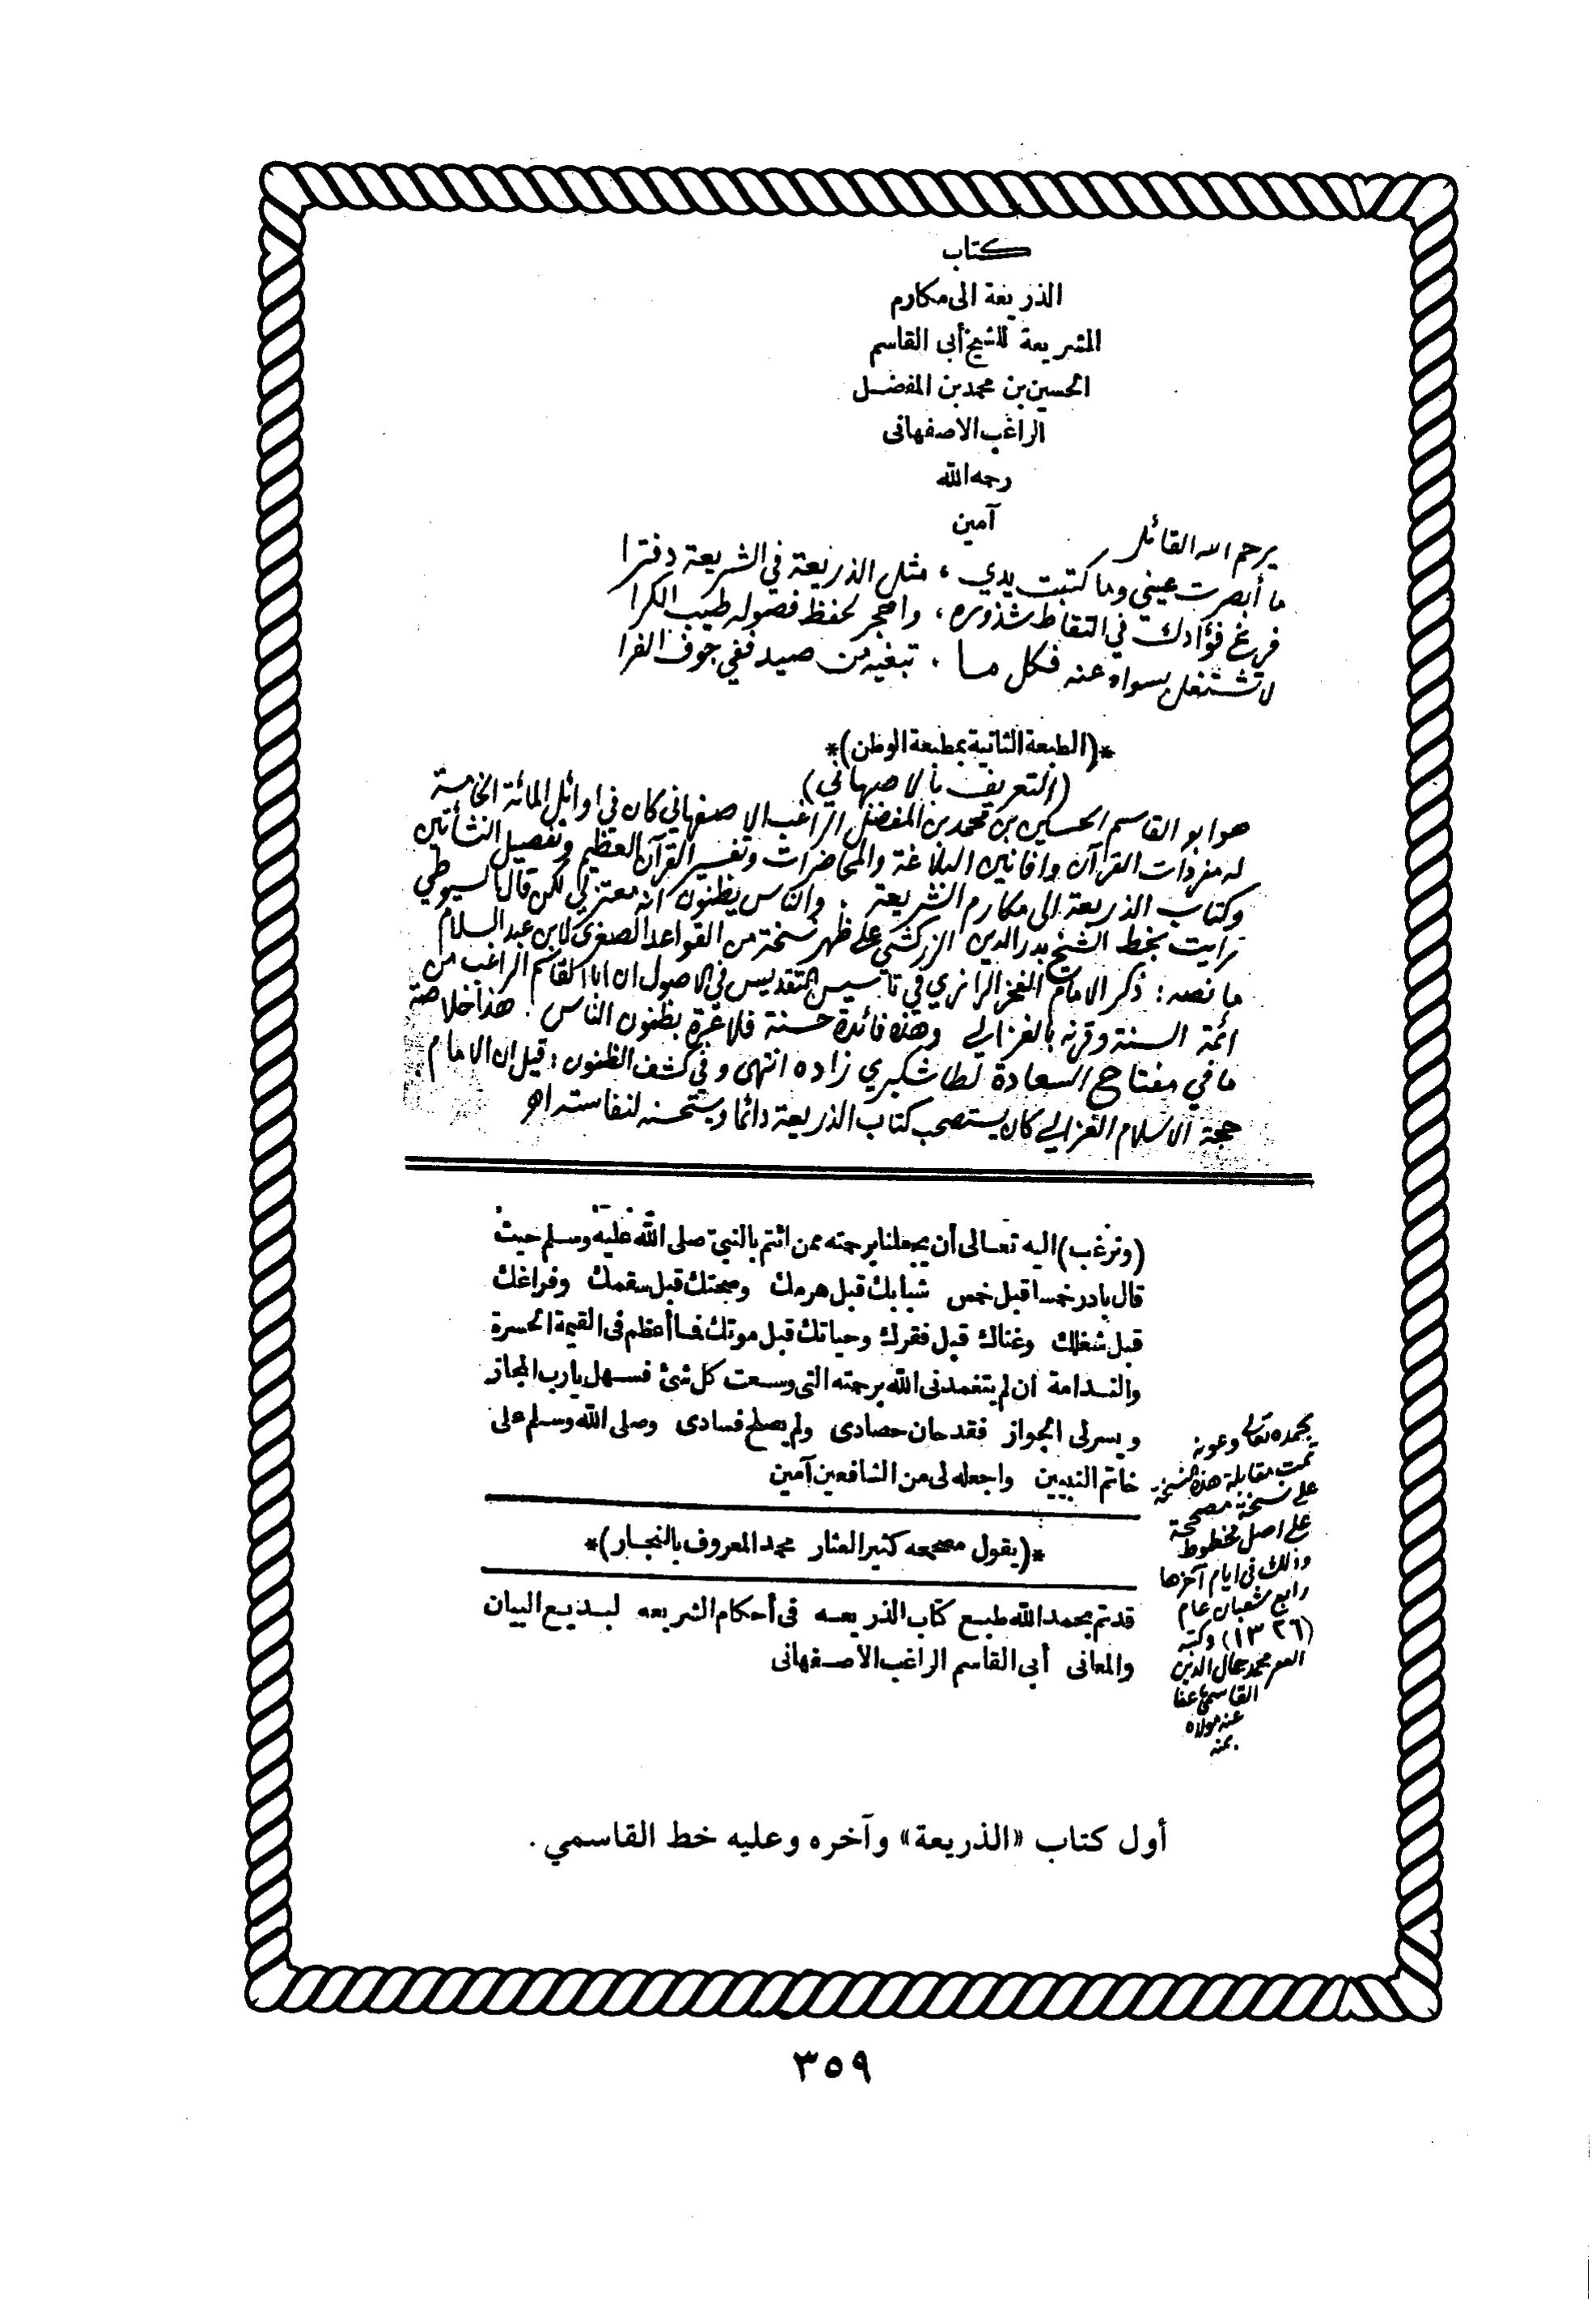 كتاب
الذريعة الى مكارم
الشريعة للشيخ أبى القاسم
الحسين بن محمد بن المفضل
الراغب الاصفهانى
رحمه الله
آمين
يرحم الله القائل
ما أبصرت عيني وما كتبت يدي ، مثل الذريعة في الشريعة دفترا
فرغ فؤادك في التقاط شذوره ، واهجر لحفظ فصوله طيب الكرا
لا تشتغل بسواه عنه فكل ما . تبغيه من صيد ففي جوف الفرا
*(الطبعة الثانية بمطبعة الوطن)*
(التعريف بالاصبهاني)
هو ابو القاسم الحسين بن محمد بن المفضل الراغب الاصفهاني كان في اوائل المائة الخامسة
له مفردات القرآن وافانين البلاغة والمحاضرات وتفسير القرآن العظيم وتفصيل النشأتين
وكتاب الذريعة الى مكارم الشريعة . والناس يظنون انه معتزلي لكن قال السيوطي
رايت بخط الشيخ بدر الدين الزركشي على ظهر نسخة من القواعد الصغرى لابن عبد السلام
ما نصه : ذكر الامام الفخر الرازي في تاسيس التقديس في الاصول ان ابا القاسم الراغب من
ائمة السنة وقرنه بالغزالي وهذه فائدة حسنة فلا عبرة بظنون الناس . هذا خلاصة
ما في مفتاح السعادة لطاشكبري زاده انتهى وفي كشف الظنون : قيل ان الامام
حجة الاسلام الغزالي كان يستصحب كتاب الذريعة دائما ويستحسنه لنفاسته اهـ
(ونرغب) اليه تعالى أن يجعلنا برحمته ممن ائتم بالنبي صلى الله عليه وسلم حيث
قال بادر خمسا قبل خمس شبابك قبل هرمك وصحتك قبل سقمك وفراغك
قبل شغلك وغناك قبل فقرك وحياتك قبل موتك فما أعظم فى القيمة الحسرة
والندامة ان لم يتغمدنى الله برحمته التى وسعت كل شئ فسهل يارب المجاز
ويسر لى الجواز فقد حان حصادى ولم يصلح فسادى وصلى الله وسلم على
خاتم النبيين واجعله لى من الشافعين آمين
*(يقول مصححه كثير العثار محمد المعروف بالنجار)*
قد تم بحمد الله طبع كتاب الذريعه فى أحكام الشريعه لبديع البيان
والمعانى أبى القاسم الراغب الاصفهانى
بحمده تعالى وعونه
تمت مقابلة هذه النسخة
على نسخة مصححة
على اصل مخطوط
وذلك في ايام آخرها
رابع شعبان عام
(١٣٢٦) وكتبه
محمد جمال الدين
القاسمي عفا
عنه مولاه
بمنه
أول كتاب «الذريعة» وآخره وعليه خط القاسمي .
٣٥٩